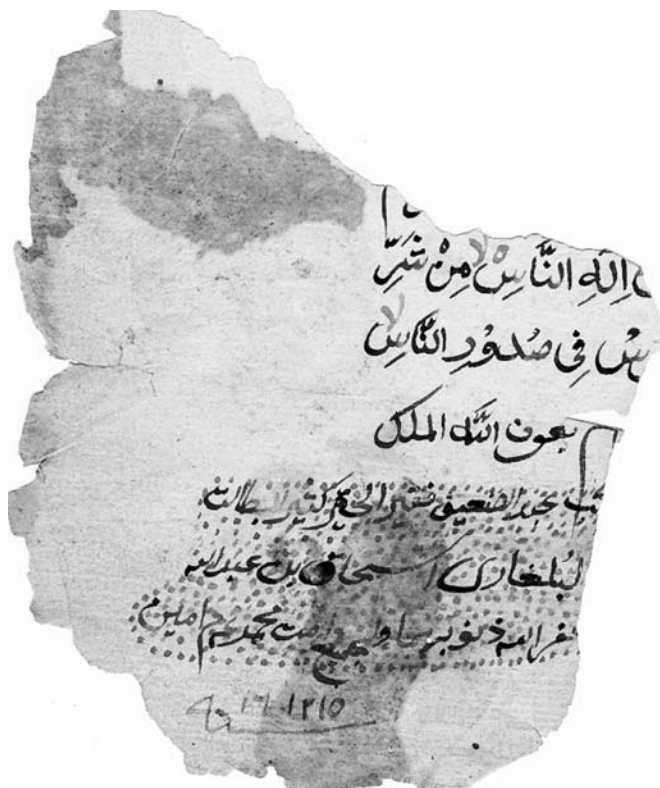 اِلٰهِ النَّاسِۙ مِنْ شَرِّ
سْ فِى صُدُوْرِ النَّاسِۙ
بعون الله الملك
الضعيف فقير الحقير كثير
لبلغارى اسحاق بن عبد الله
غفر الله ذنوبهما و امت محمد عم امين
جميع
١٢١٥